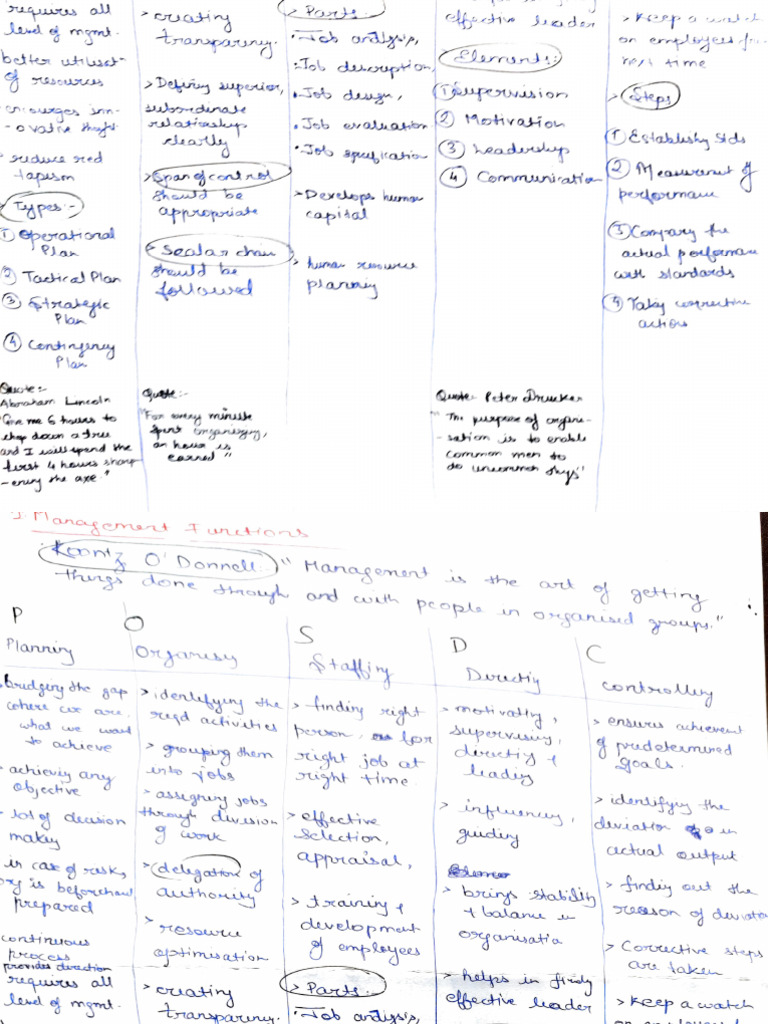 requires all
level of mgmt.
better utilisat-
of resources
encourages inn-
-ovative thought
reduce red
tapism
Types:-
① Operational
Plan
② Tactical Plan
③ Strategic
Plan
④ Contingency
Plan
Quote:-
Abraham Lincoln
"Give me 6 hours to
chop down a tree
and I will spend the
first 4 hours sharp
-ening the axe."
> creating
transparency.
> Defining superior,
subordinate
relationship
clearly
> Span of control
should be
appropriate
> Scalar chain
should be
followed
Quote:-
"For every minute
spent organising,
an hour is
earned"
> Parts:
• Job analysis,
• Job description,
• Job design,
• Job evaluation
• Job specification
> Develops human
capital
> human resource
planning
effective leader
Elements:
① Supervision
② Motivation
③ Leadership
④ Communication
Quote: Peter Drucker
"The purpose of organi-
-sation is to enable
common men to
do uncommon things"
> Keep a watch
on employees
time
> Steps
① Establishing Stds
② Measurement of
performance
③ Comparing the
actual performance
with standards
④ Taking corrective
actions
Management Functions
Koontz O'Donnell: "Management is the art of getting
things done through and with people in organised groups."
P
Planning
Bridging the gap
where we are,
what we want
to achieve
achieving any
objective
lots of decision
making
in case of risk,
is beforehand
prepared
continuous
process
provides direction
requires all
level of mgmt.
O
Organising
> identifying the
reqd activities
> grouping them
into jobs
> assigning jobs
through division
of work
> delegation of
authority
> resource
optimisation
> creating
transparency.
S
Staffing
> finding right
person, for
right job at
right time
> effective
selection,
appraisal,
> training +
development
of employees
> Parts:
• Job analysis,
D
Directing
> motivating,
supervising,
directing +
leading
> influencing,
guiding
> brings stability
+ balance in
organisation
> helps in finding
effective leader
C
Controlling
> ensures achievement
of predetermined
goals.
> identifying the
deviation in
actual output
> finding out the
reason of deviation
> Corrective steps
are taken
> Keep a watch